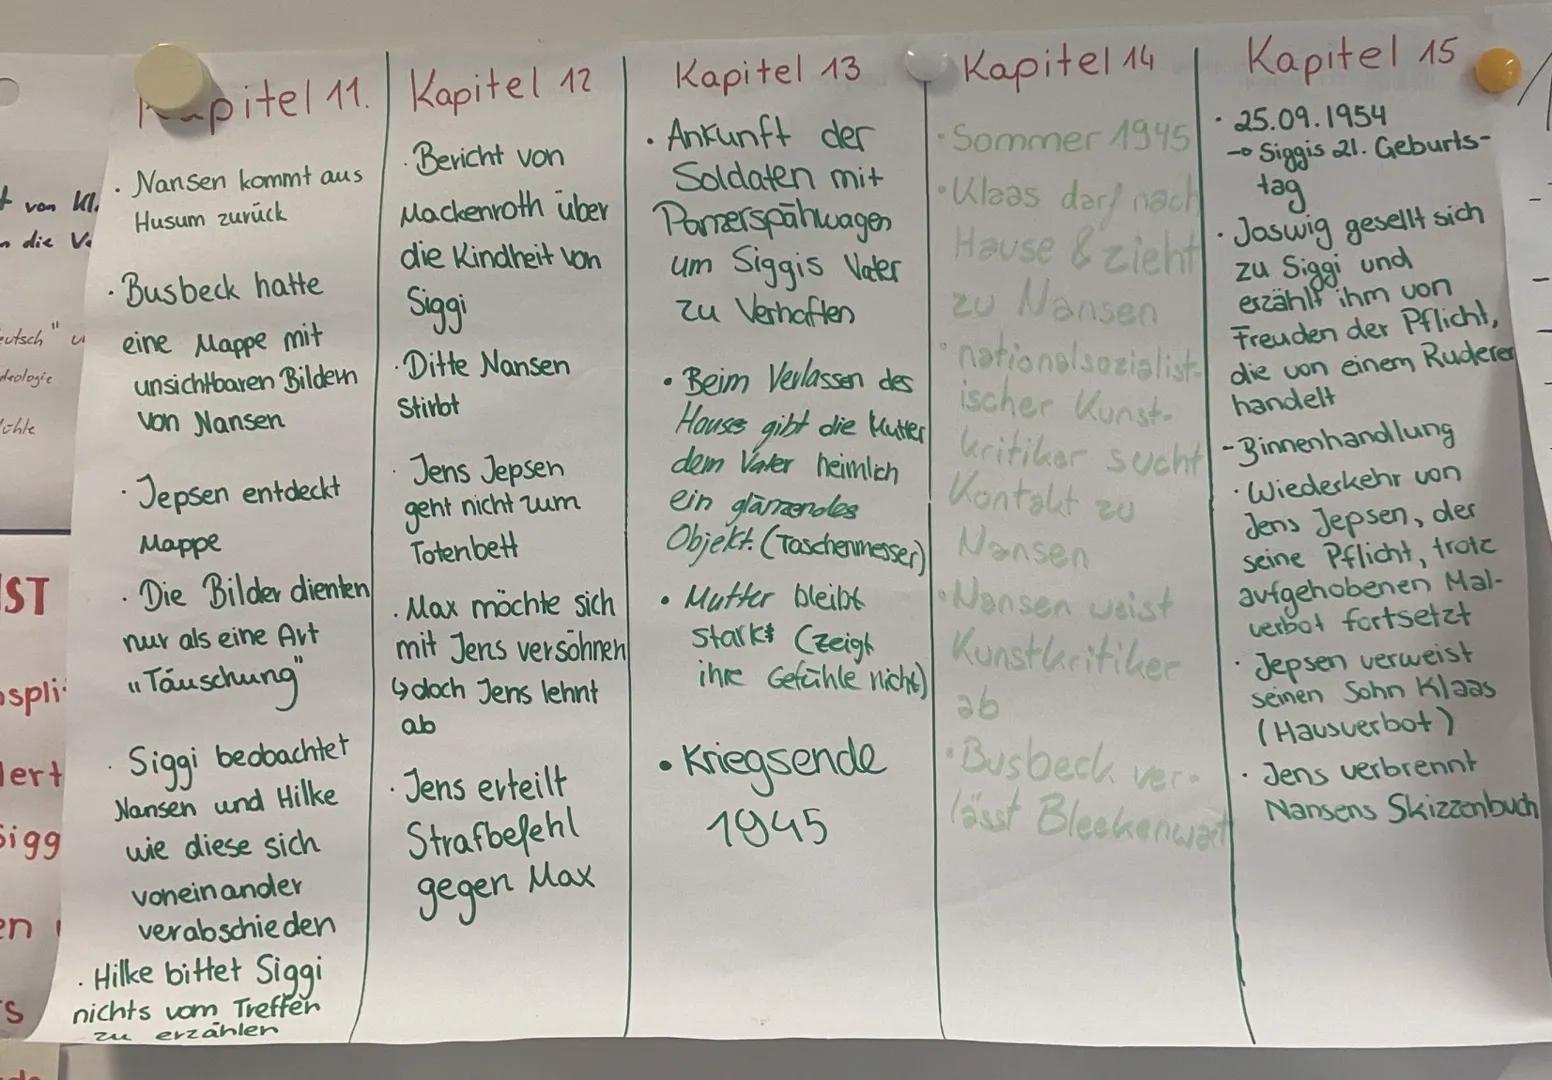 Kapitel 11.
· Nansen kommt aus
Husum zurück
· Busbeck hatte
eine Mappe mit
unsichtbaren Bildern
von Nansen
· Jepsen entdeckt
Mappe
· Die Bilder dienten
nur als eine Art
"Täuschung"
· Siggi beobachtet
Nansen und Hilke
wie diese sich
voneinander
verabschieden
· Hilke bittet Siggi
nichts vom Treffen
zu erzählen
Kapitel 12
· Bericht von
Mackenroth über
die Kindheit von
Siggi
· Ditte Nansen
stirbt
· Jens Jepsen
geht nicht zum
Totenbett
· Max möchte sich
mit Jens versöhnen
↳ doch Jens lehnt
ab
· Jens erteilt
Strafbefehl
gegen Max
Kapitel 13
· Ankunft der
Soldaten mit
Panzerspähwagen
um Siggis Vater
zu Verhaften
· Beim Verlassen des
Hauses gibt die Mutter
dem Vater heimlich
ein glänzendes
Objekt. (Taschenmesser)
· Mutter bleibt
stark (zeigt
ihre Gefühle nicht)
· Kriegsende
1945
Kapitel 14
· Sommer 1945
· Klaas darf nach
Hause & zieht
zu Nansen
· nationalsozialist-
ischer Kunst-
kritiker sucht
Kontakt zu
Nansen
· Nansen weist
Kunstkritiker
ab
· Busbeck ver-
lässt Bleekenwarf
Kapitel 15
· 25.09.1954
→ Siggis 21. Geburts-
tag
· Joswig gesellt sich
zu Siggi und
erzählt ihm von
Freuden der Pflicht,
die von einem Ruderer
handelt
- Binnenhandlung
· Wiederkehr von
Jens Jepsen, der
seine Pflicht, trotz
aufgehobenen Mal-
verbot fortsetzt
· Jepsen verweist
seinen Sohn Klaas
(Hausverbot)
· Jens verbrennt
Nansens Skizzenbuch
von Kl.
die
eutsch" u
deologie
IST
Sigg
en